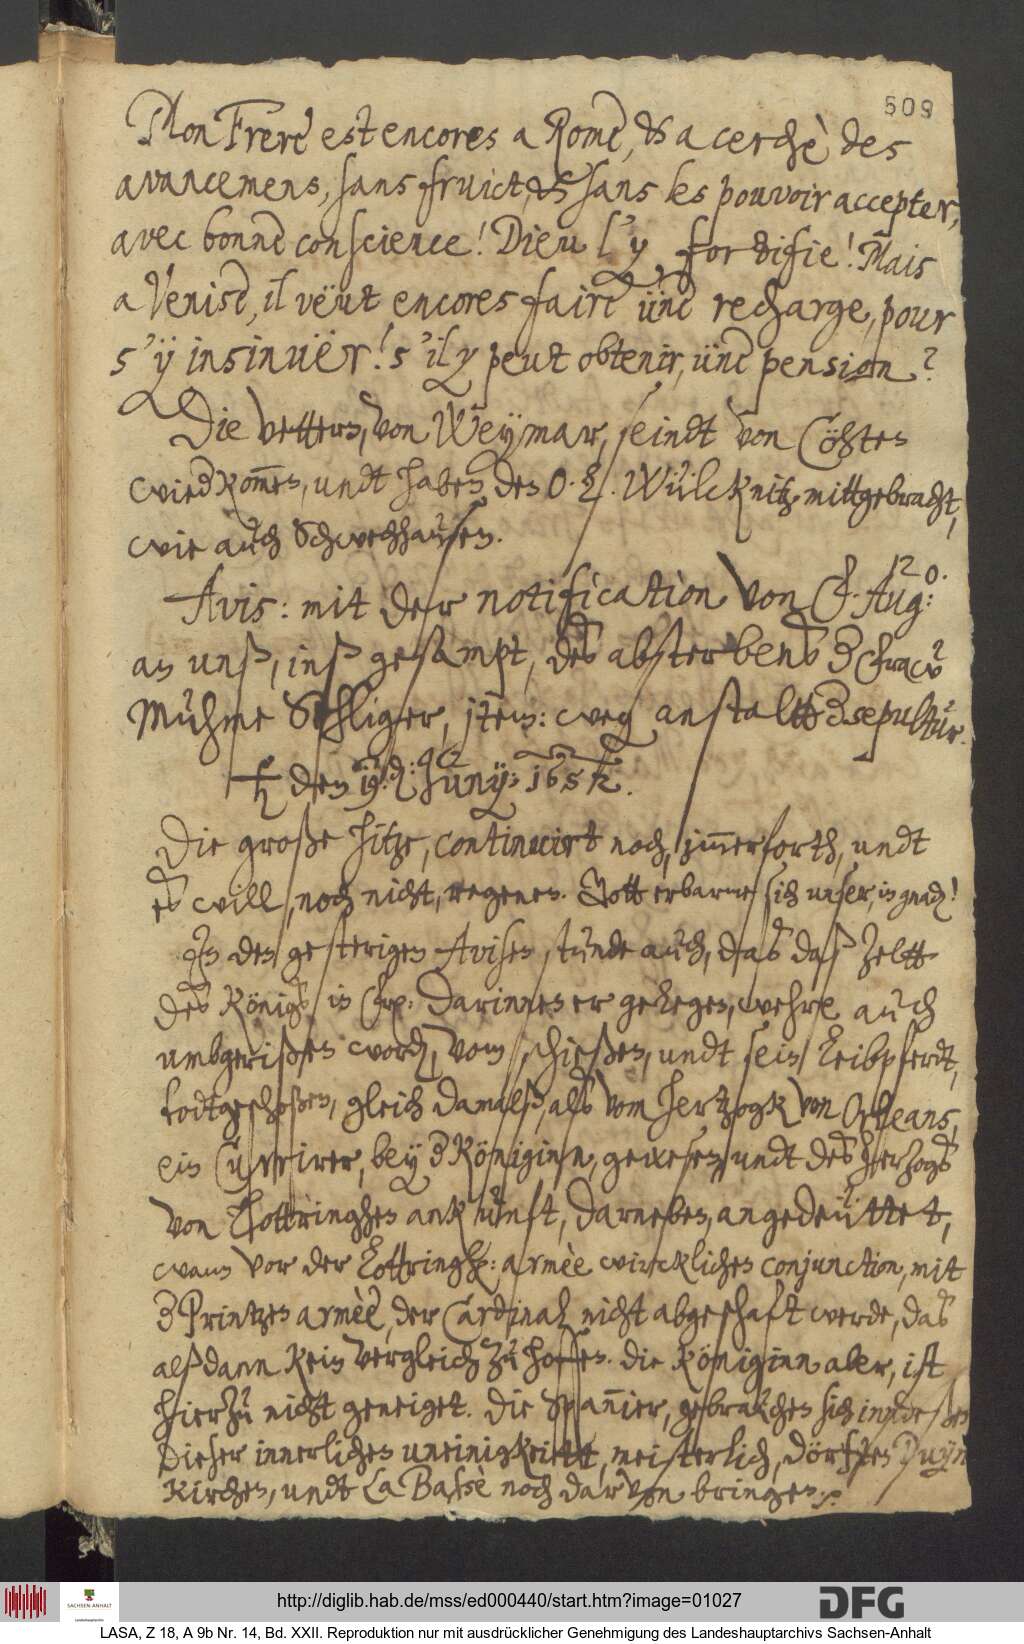 509
Mon Frere est encores a Rome, & a cerchè des
avancemens, sans fruict, & sans les pouvoir accepter,
avec bonne conscience! Dieu l'y fortifie! Mais
a Venise, il veut encores faire üne recharge, pour
s'ÿ insinuër! s'il y peut obtenir, üne pension?
Die Vettern, von Weÿmar, seindt von Cöhten
wiederkommen, undt haben den O. L. Wülcknitz mittgebracht,
wie auch Schwechhausen.
Avis: mit der notification von F. Aug:
an unß, inß gesampt, des absterbens
Muhme Schliger, jtem: weg anstaltt sepultur.
♄ den 19. Junÿ: 1652.
Die große hitze, continuirt noch, immerforth, undt
es will, noch nicht, regenen. Gott erbarme sich unser, in gnaden!
In den gesterigen Avisen stunde auch, das daß Zeltt
des Königs in Darinnen er gelegen, wehre auch
umbgerißen worden, vom schießen, undt sein Leibpferdt,
todtgeschoßen, gleich damalß, als vom Hertzogk von Orleans,
ein Currirer, beÿ Königinn, gewesen, undt des Herzogs
von Lottringhen ankunft, darneben, angedeüttet,
wann vor der Lottringh: armèe wircklichen conjunction, mit
Printzen armèe, der Cardinal nicht abgeschaft werde, das
alßdann kein vergleich zu hoffen. die Königinn aber, ist
hierzu nicht geneiget. Die Spannier, gebrauchen sich indeßen
dieser innerlichen uneinigkeitt, meisterlich, dörften Duÿn
kirchen, undt La Bassè noch darvon bringen.
http://diglib.hab.de/mss/ed000440/start.htm?image=01027
SACHSEN-ANHALT
DFG
LASA, Z 18, A 9b Nr. 14, Bd. XXII. Reproduktion nur mit ausdrücklicher Genehmigung des Landeshauptarchivs Sachsen-Anhalt